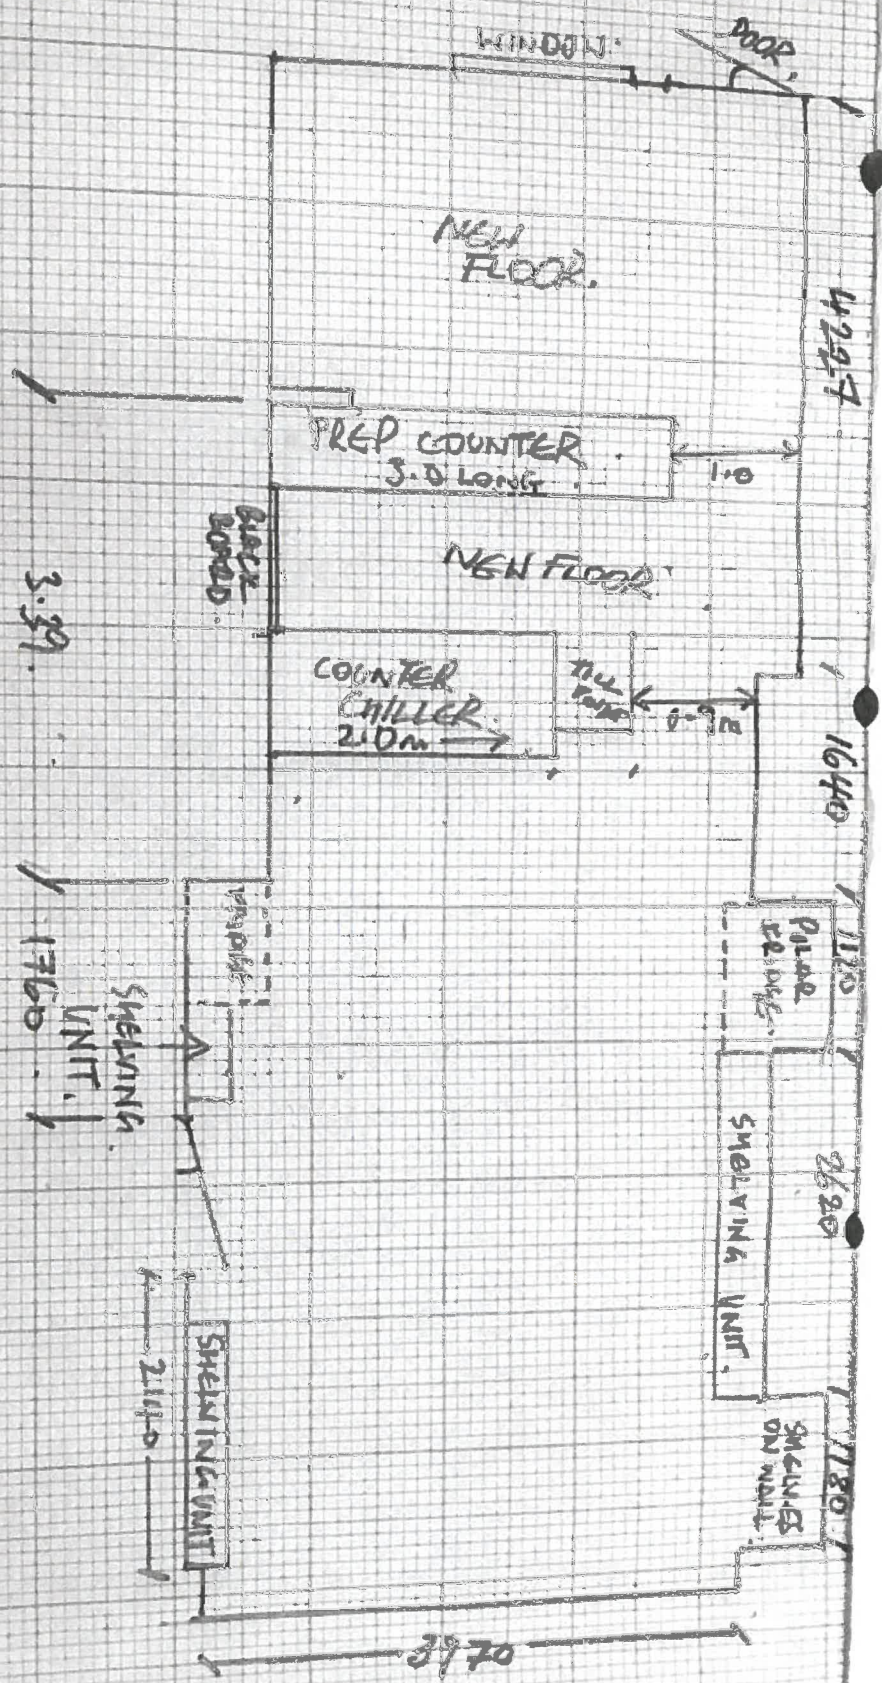 WINDOW.
DOOR.
NEW
FLOOR.
4227
PREP COUNTER
3.0 LONG
1.0
BLACK
BOARD.
NEW FLOOR
3.39.
COUNTER
CHILLER.
2.0m
TILL
POINT
1640
FRIDGE
1120
SHELVING
UNIT.
1760
SHELVING UNIT.
2620
SHELVING UNIT
2140
SHELVES
ON WALL
1180
3970